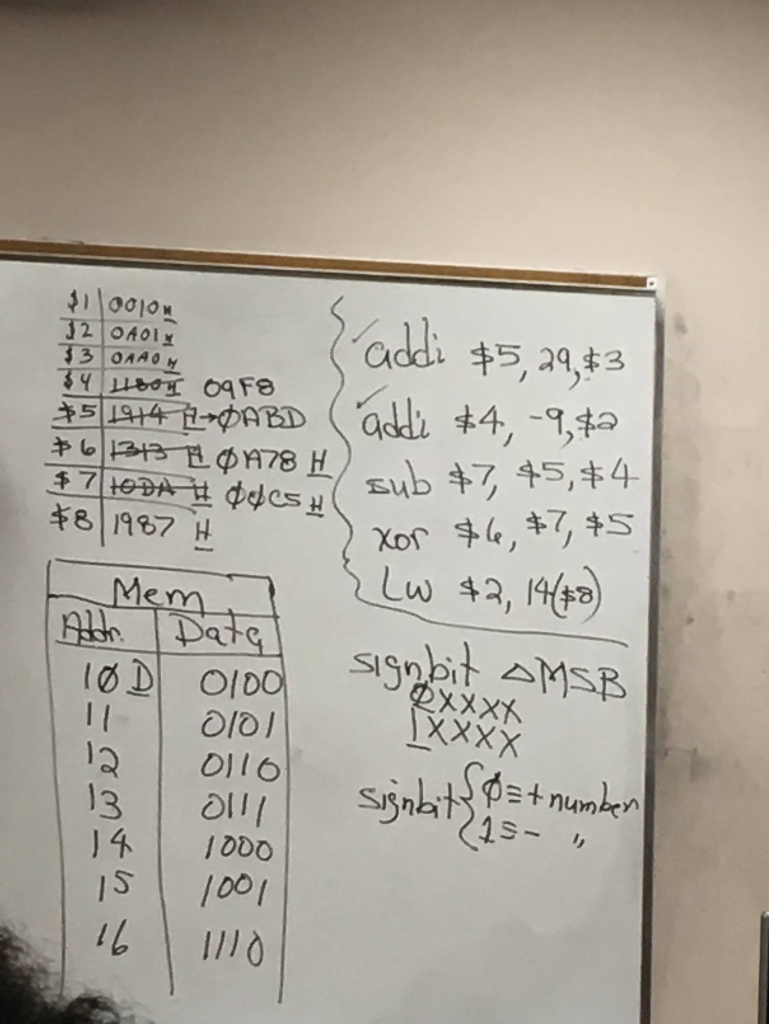 $1 0010H
$2 0A01H
$3 0AA0H
$4 1180H 09F8
$5 1914 H→0ABD
$6 1313 H 0A78 H
$7 10DA H 00C5 H
$8 1987 H
addi $5, 29, $3
addi $4, -9, $2
sub $7, $5, $4
xor $6, $7, $5
Lw $2, 14($8)
Mem
Addr. Data
10 D 0100
11 0101
12 0110
13 0111
14 1000
15 1001
16 1110
signbit △ MSB
0XXXX
1XXXX
signbit { 0 ≡ + number
1 ≡ - "